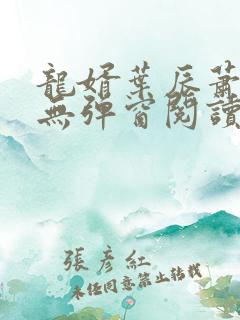 龍婿葉辰蕭
無彈窗閱讀
張彥紅
未經同意禁止轉載